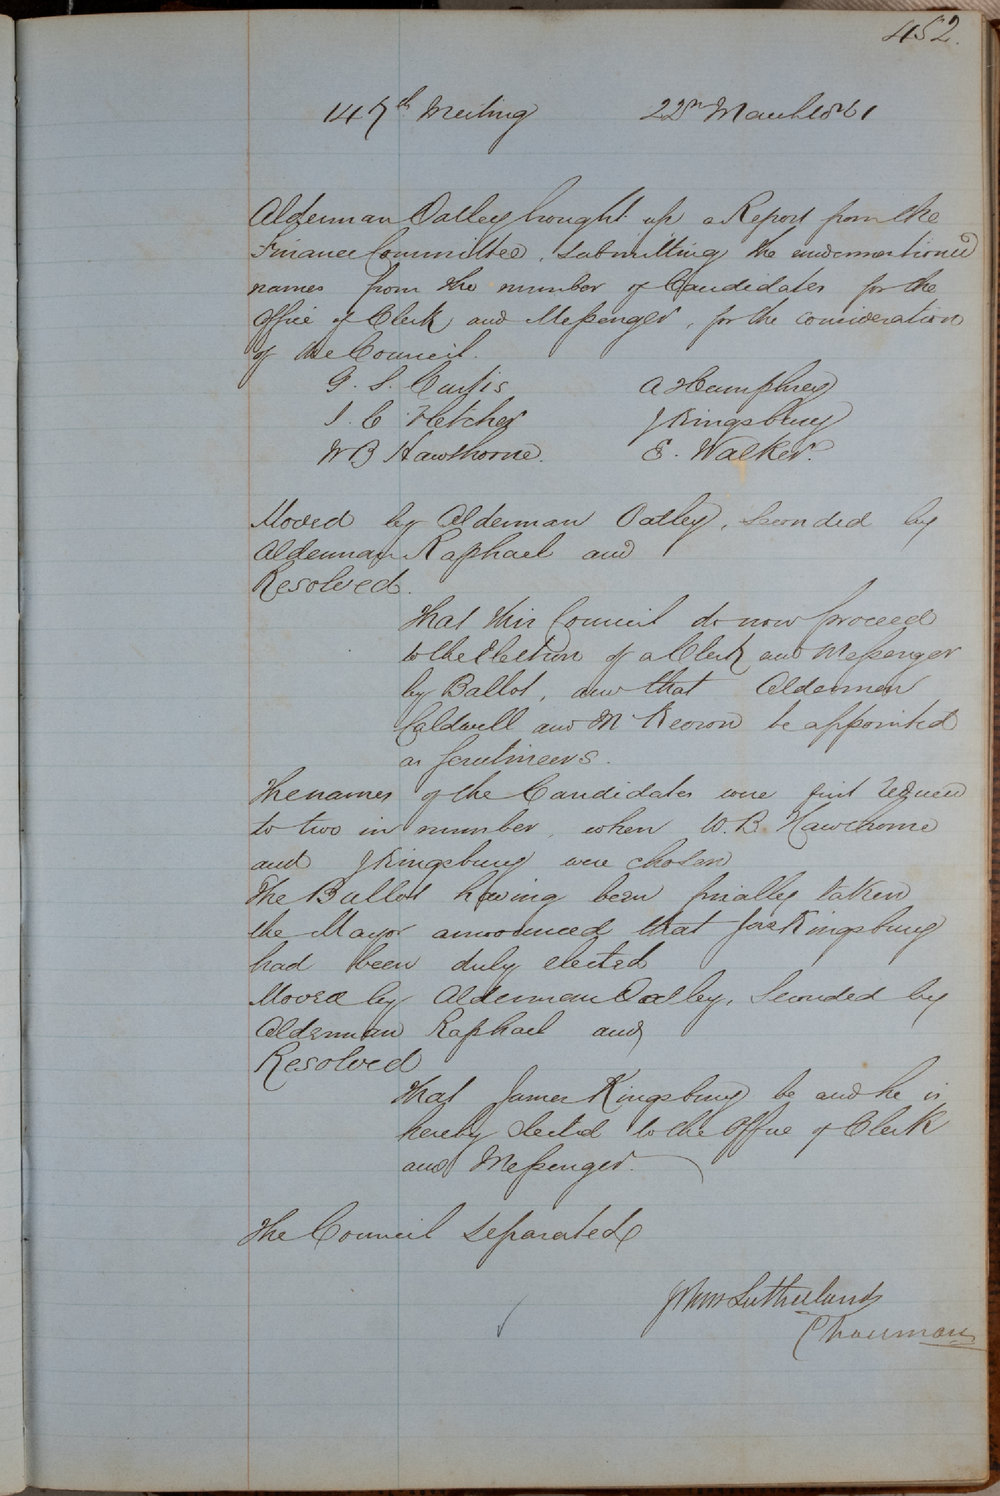 452.
147th Meeting 22nd March 1861
Alderman Oatley brought up a Report from the
Finance Committee, submitting the undermentioned
names from the number of Candidates for the
Office of Clerk and Messenger, for the consideration
of the Council.
G. S. Curtis A Humphrey
J. C Fletcher J Kingsbury
W B Hawthorne. E. Walker.
Moved by Alderman Oatley, Seconded by
Alderman Raphael and
Resolved.
That this Council do now proceed
to the Election of a Clerk and Messenger
by Ballot, and that Aldermen
Caldwell and McKeown be appointed
as Scrutineers.
The names of the Candidates were first reduced
to two in number, when W. B. Hawthorne
and J Kingsbury were chosen
The Ballot having been finally taken
the Mayor announced that Jas Kingsbury
had been duly elected
Moved by Alderman Oatley, Seconded by
Alderman Raphael and
Resolved
That James Kingsbury be and he is
hereby elected to the Office of Clerk
and Messenger.
The Council separated
John Sutherland
Chairman